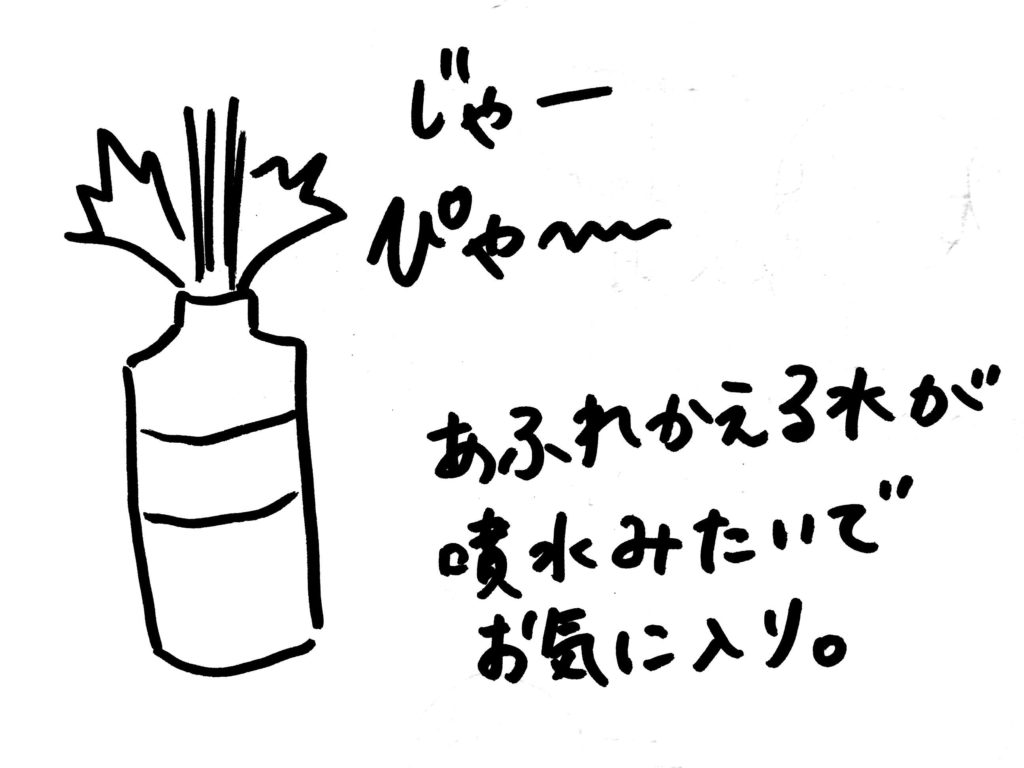 じゃー
ぴゃ〜
あふれかえる水が
噴水みたいで
お気に入り。